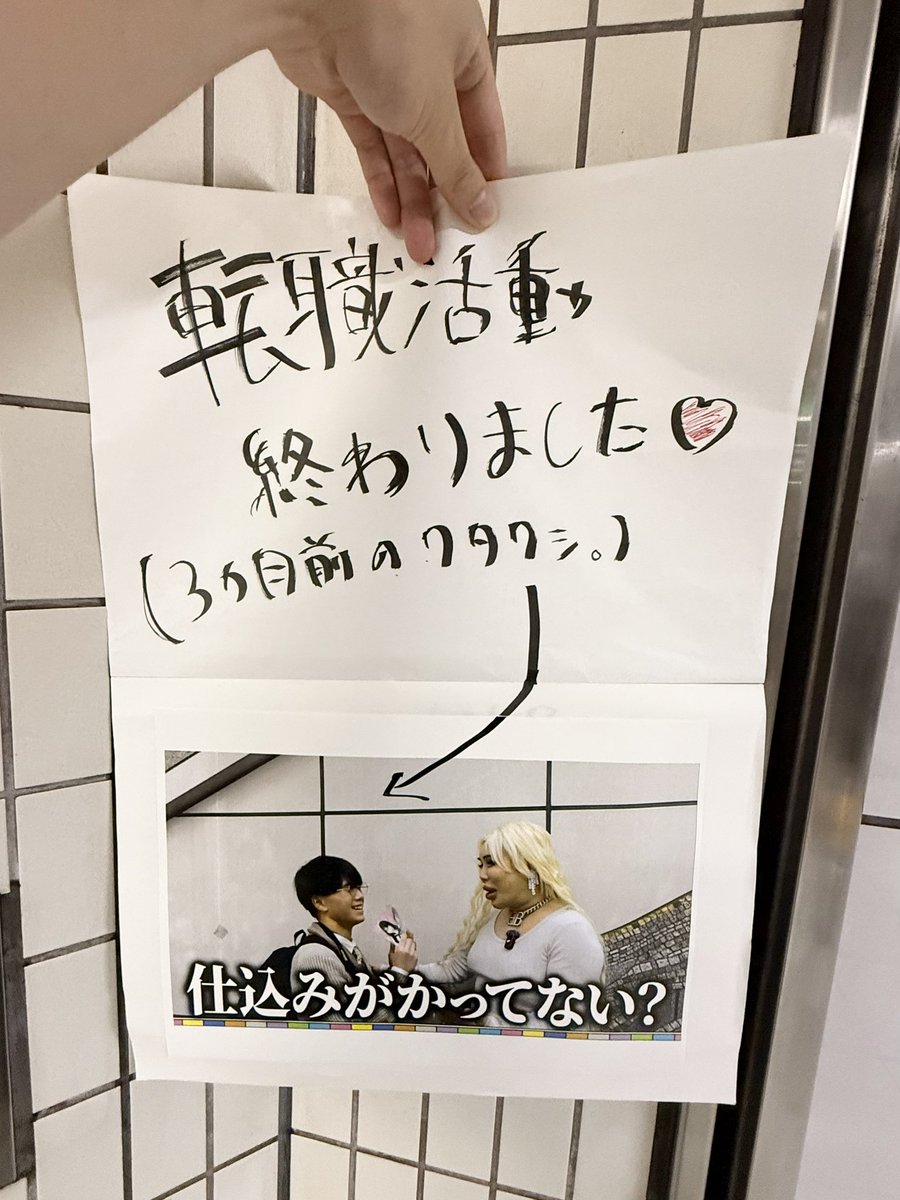 転職活動
終わりました♡
(3ヵ月前のワタクシ。)
仕込みがかってない?